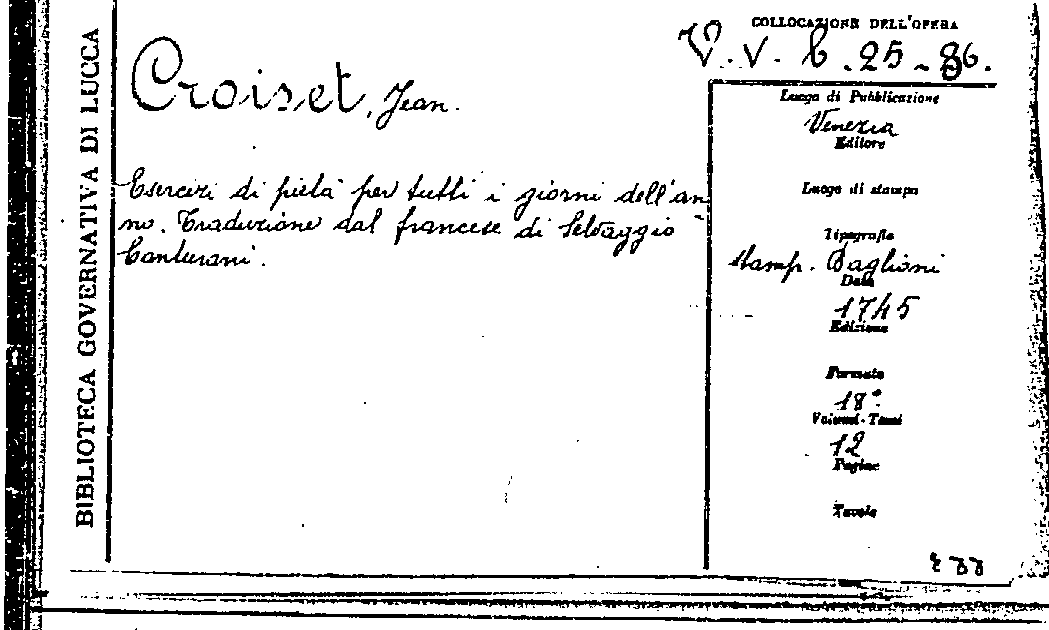 BIBLIOTECA GOVERNATIVA DI LUCCA
COLLOCAZIONE DELL'OPERA
V. V. b. 25-36.
Croiset, Jean.
Esercizi di pietà per tutti i giorni dell'an
no. Traduzione dal francese di Selvaggio
Canturani.
Luogo di Pubblicazione
Venezia
Editore
Luogo di stampa
Tipografia
Stamp. Baglioni
Data
1745
Edizione
Formato
18°
Volumi-Tomi
12
Pagine
Tavole